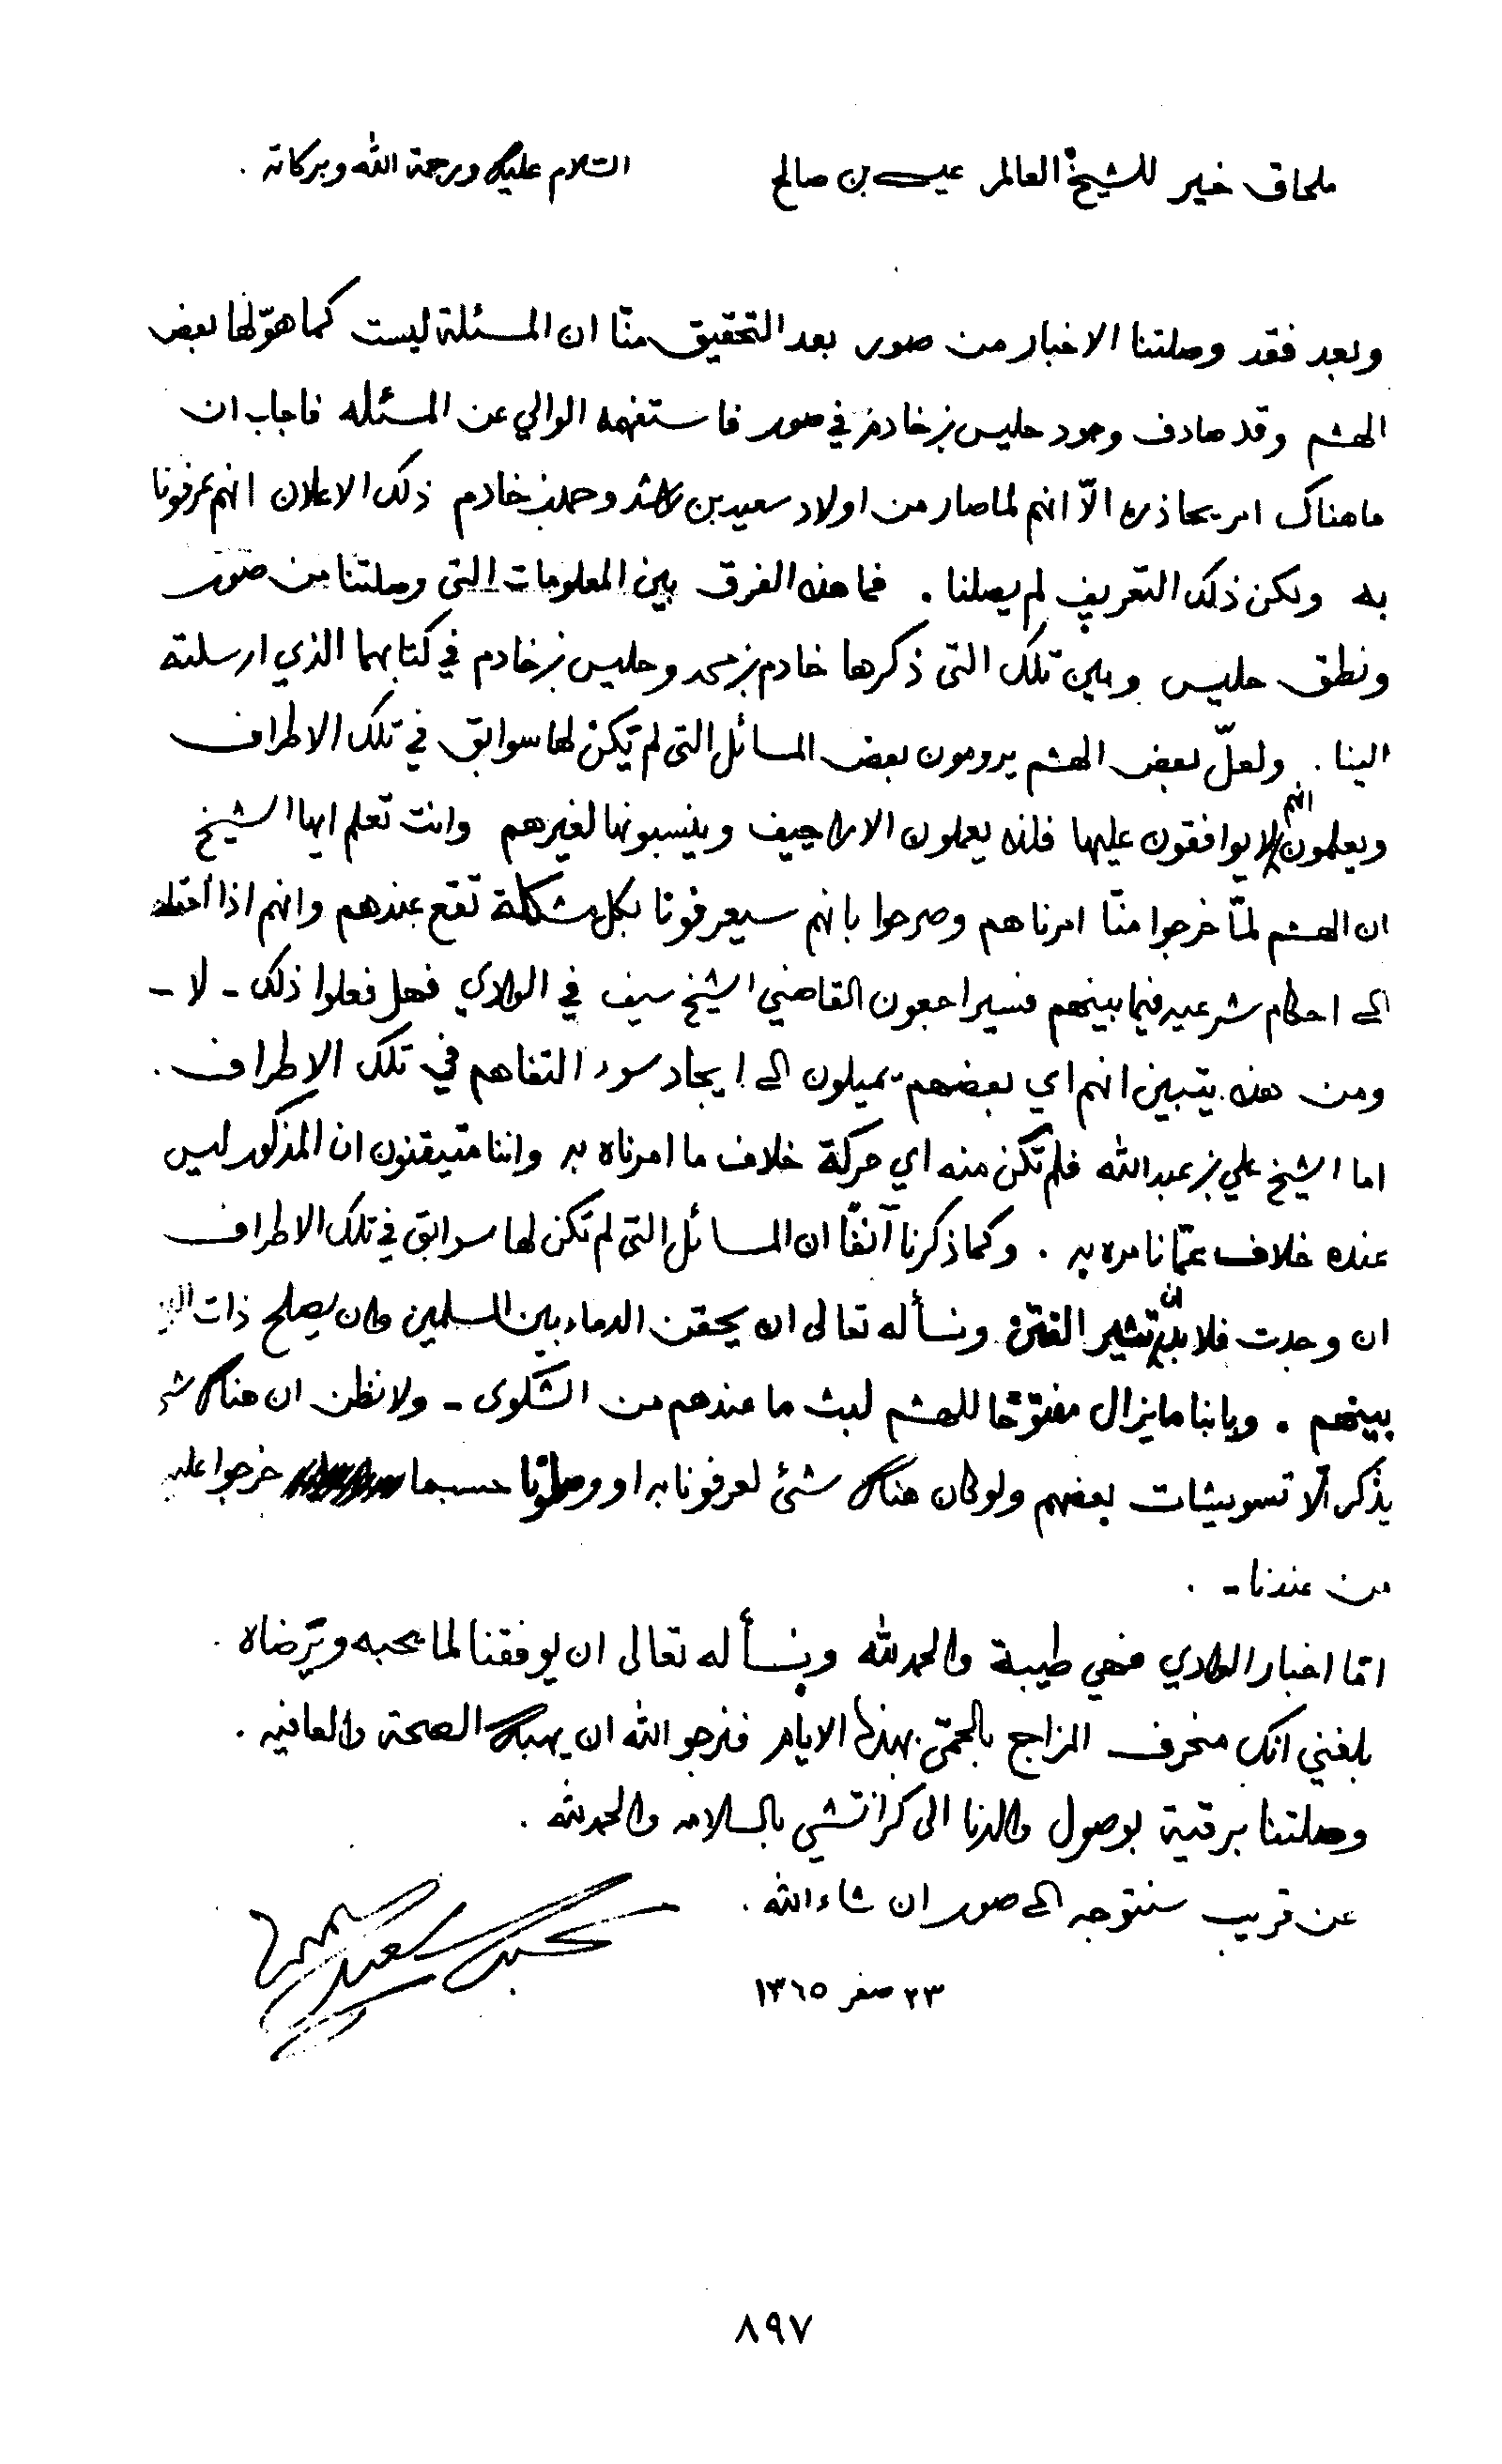 ملحاق خير للشيخ العالم عيسى بن صالح السلام عليك ورحمة الله وبركاته .
وبعد فقد وصلتنا الاخبار من صور بعد التحقيق منّا ان المسئلة ليست كما هوّلها بعض
الهشم وقد صادف وجود حليس بن خادم في صور فاستفهمه الوالي عن المسئله فاجاب ان
ما هناك امر يحاذره الّا انهم لما صار من اولاد سعيد بن راشد وحمد بن خادم ذلك الاعلان انهم عرفونا
به ولكن ذلك التعريف لم يصلنا . فما هذه الفرق بين المعلومات التي وصلتنا من صور
ونطق حليس وبين تلك التي ذكرها خادم بن محمد وحليس بن خادم في كتابهما الذي ارسلته
الينا . ولعلّ بعض الهشم يرومون بعض المسائل التي لم تكن لها سوابق في تلك الاطراف
ويعلمون انهم لا يوافقون عليها فلذه يعملون الاراجيف وينسبونها لغيرهم وانت تعلم ايها الشيخ
ان الهشم لمّا خرجوا منّا امرناهم وصرحوا بانهم سيعرفونا بكل مشكلة تقع عندهم وانهم اذا
الى احكام شرعيه فيما بينهم فسيراجعون القاضي الشيخ سيف في الوادي فهل فعلوا ذلك - لا -
ومن هذه يتبين انهم اي بعضهم يميلون الى ايجاد سوء التفاهم في تلك الاطراف .
اما الشيخ علي بن عبدالله فلم تكن منه اي حركة خلاف ما امرناه به واننا متيقنون ان المذكور ليس
عنده خلاف عمّا نامره به . وكما ذكرنا آنفًا ان المسائل التي لم تكن لها سوابق في تلك الاطراف
ان وجدت فلا بد ان تثير الفتن ونسأله تعالى ان يحقن الدماء بين المسلمين وان يصلح ذات
بينهم . وبابنا ما يزال مفتوحًا للهشم لبث ما عندهم من الشكوى - ولا نظن ان هناك
يذكر الّا تسويشات بعضهم ولو كان هناك شئ لعرفونا به او وصلونا حسبما خرجوا عليه
من عندنا - .
امّا اخبار الوادي فهي طيبة والحمد لله ونسأله تعالى ان يوفقنا لما يحبه ويرضاه .
بلغني انك منحرف المزاج بالحمّى بهذه الايام فنرجو الله ان يهبك الصحة والعافيه .
وصلتنا برقية بوصول والدنا الى كراتشي بالسلامه والحمد لله .
عن قريب سنتوجه الى صور ان شاء الله .
سعيد
٢٣ صفر ١٣٦٥
٨٩٧